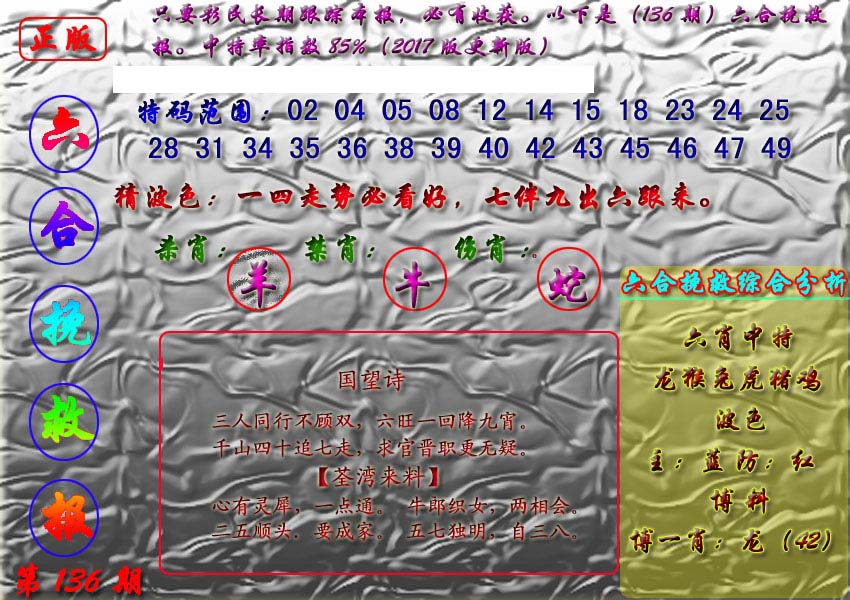 正版
只要彩民长期跟踪本报，必有收获。以下是（136期）六合挽救
报。中特率指数85%（2017版更新版）
特码范围：02 04 05 08 12 14 15 18 23 24 25
28 31 34 35 36 38 39 40 42 43 45 46 47 49
猜波色：一四走势必看好，七伴九出六跟来。
杀肖：羊 禁肖：牛 伤肖：蛇
六合挽救报
第136期
国望诗
三人同行不顾双，六旺一回降九宵。
千山四十追七走，求官晋职更无疑。
【荃湾来料】
心有灵犀，一点通。 牛郎织女，两相会。
二五顺头．要成家。 五七独明，自三八。
六合挽救综合分析
六肖中特
龙猴兔虎猪鸡
波色
主：蓝防：红
博料
博一肖：龙（42）